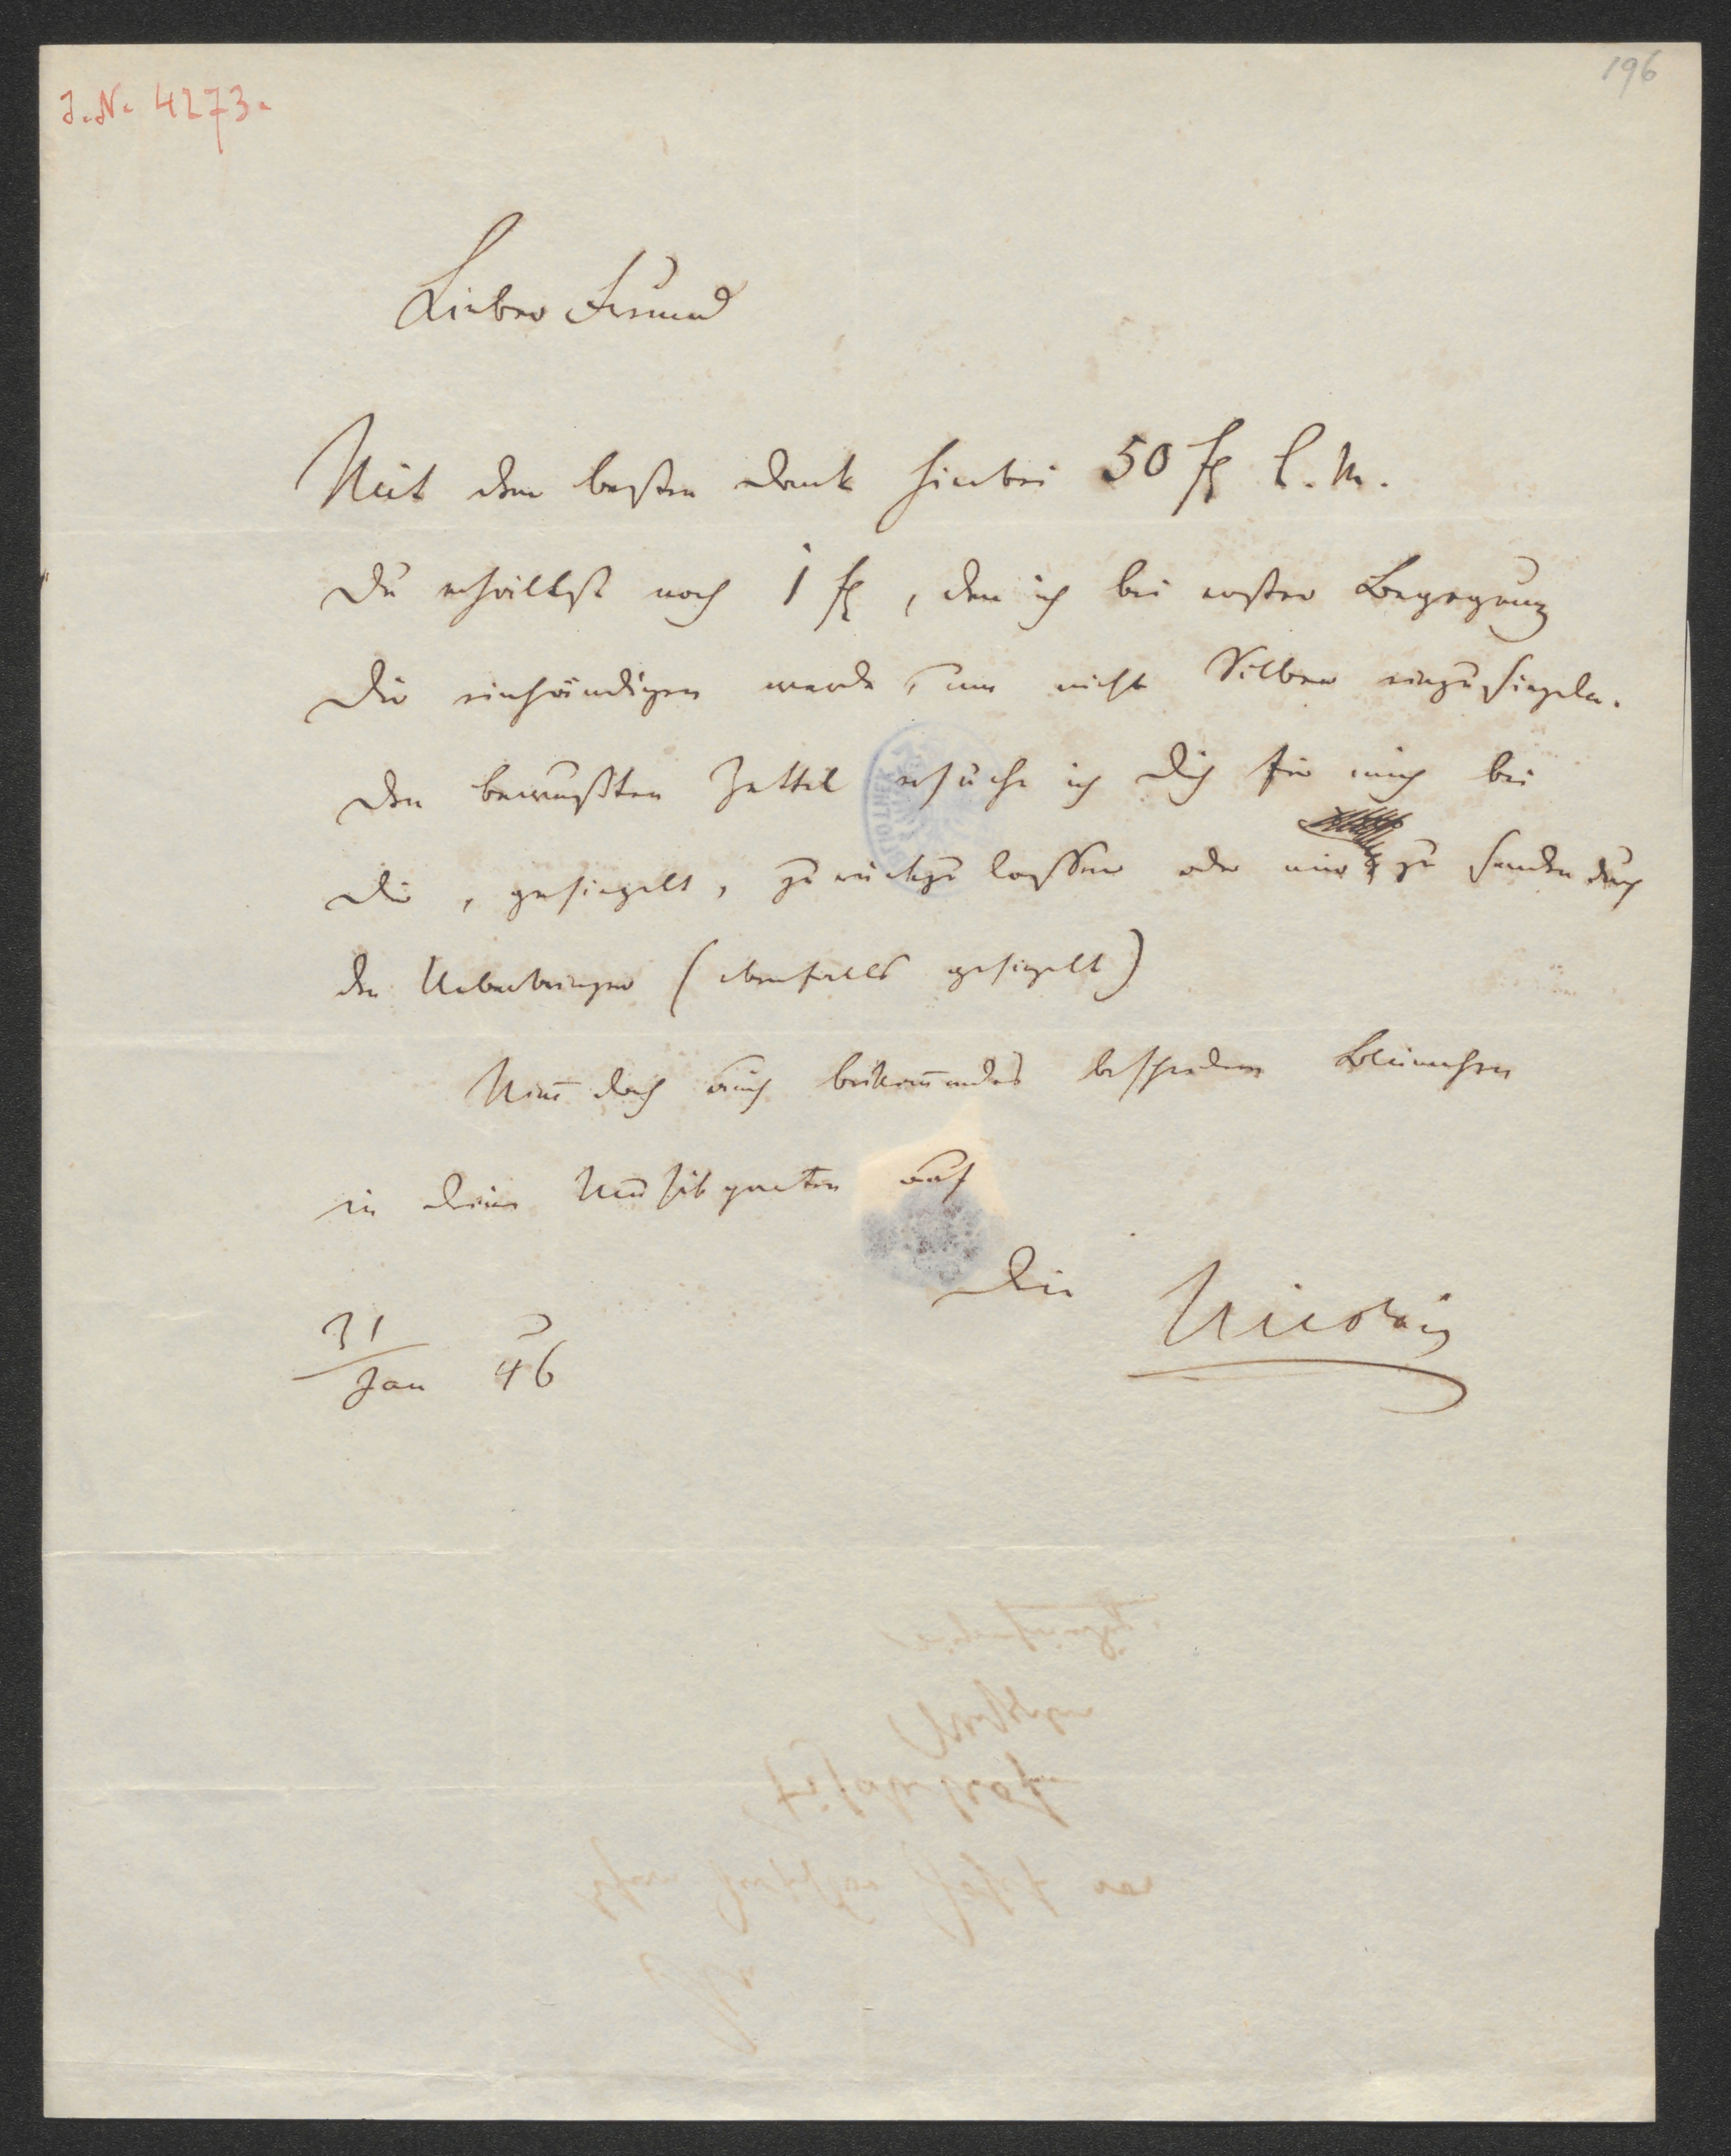 J.N. 4273.
196
Lieber Freund
Mit dem besten Dank hiebei 50 fl C. M.
Du erhältst noch 1 fl, den ich bei erster Begegnung
Dir einhändigen werde, um nicht Silber einzusiegeln.
Den bewußten Zettel ersuche ich Dich für mich bei
Dir, gesiegelt, zurückzulassen oder mir zu senden durch
den Ueberbringer (ebenfalls gesiegelt)
Nim̅ doch auch beikom̅endes bescheidene Blümchen
in Deinen Musikgarten auf
Dein Nicolai
31
Jan 46